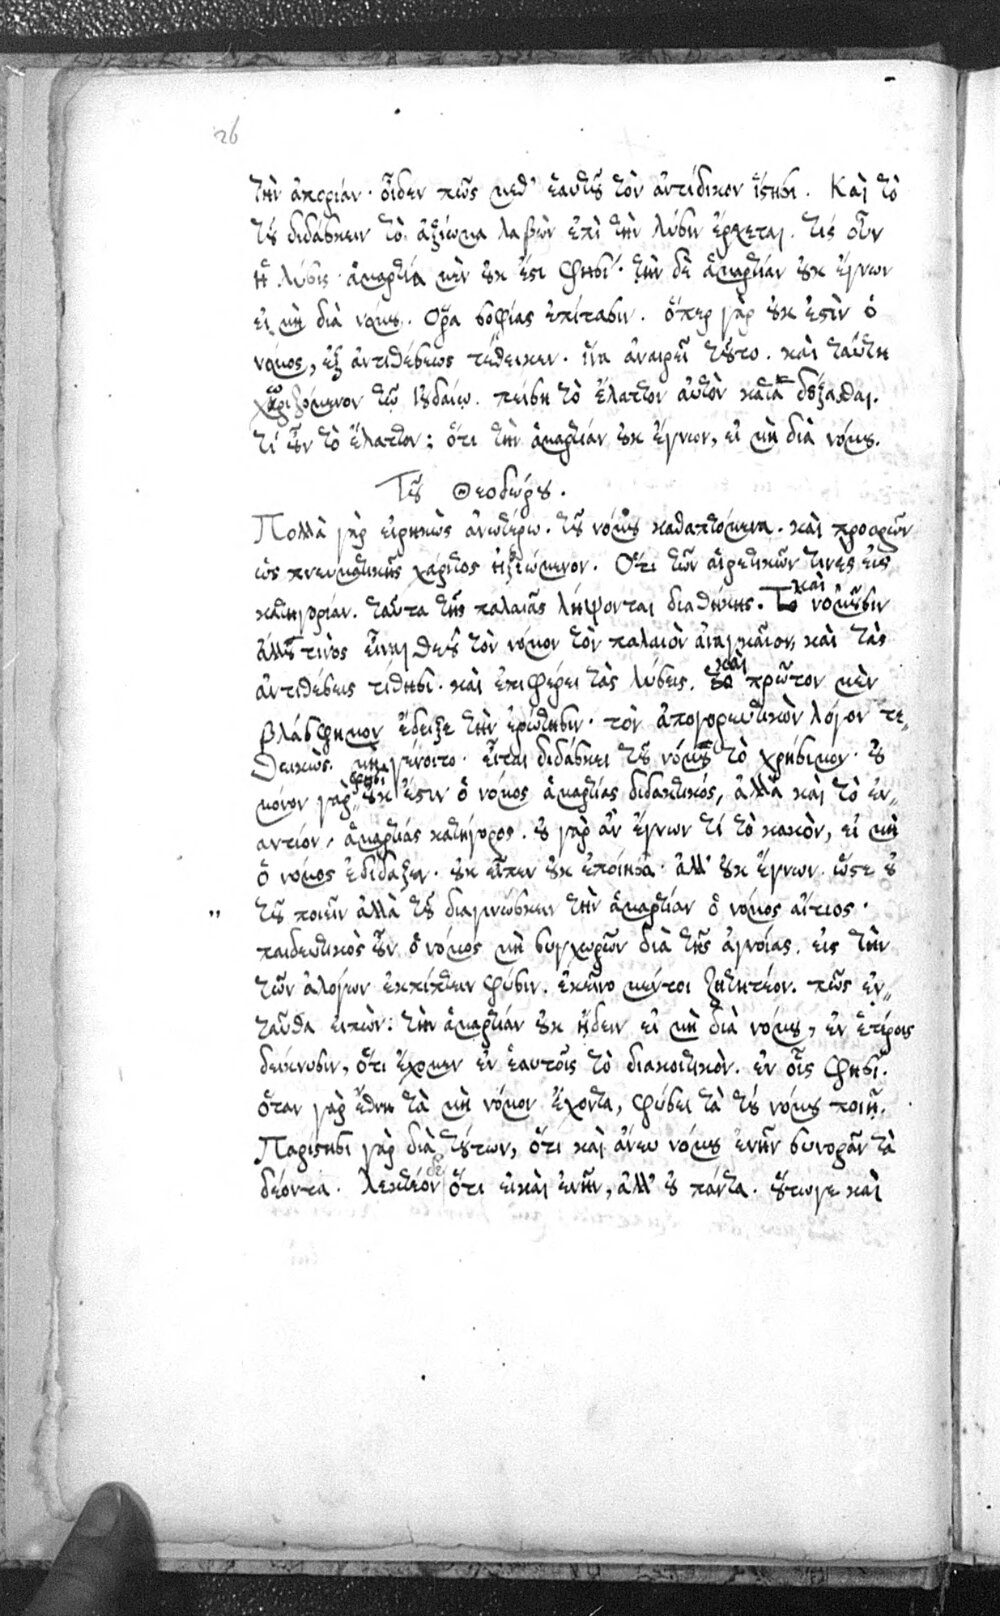 26
τὴν ἀπορίαν· οἶδεν πῶς μεθ' ἑαυτοῦ τὸν ἀντίδικον ἵστησι. Καὶ τὸ
τοῦ διδάσκειν τὸ ἀξίωμα λαβὼν ἐπὶ τὴν λύσιν ἔρχεται. τίς οὖν
ἡ λύσις· ἁμαρτία μὲν οὐκ ἔστι φησί· τὴν δὲ ἁμαρτίαν οὐκ ἔγνων
εἰ μὴ διὰ νόμου. Ὅρα σοφίας ἐπίτασιν. ὅπερ γὰρ οὐκ ἐστὶν ὁ
νόμος, ἐξ ἀντιθέσεως τέθεικεν. ἵνα ἀναιρεῖ τοῦτο. καὶ ταύτῃ
χαριζόμενον τῷ ἰουδαίῳ. πείσῃ τὸ ἔλαττον αὐτὸν δέξασθαι.
τί οὖν τὸ ἔλαττον: ὅτι τὴν ἁμαρτίαν οὐκ ἔγνων, εἰ μὴ διὰ νόμου.
Τοῦ Θεοδώρου.
Πολλὰ γὰρ εἰρηκὼς ἀνωτέρω. τοῦ νόμου καθαπτόμενα. καὶ προορῶν
ὡς πνευματικῆς χάριτος ἠξιώμενον. Ὅτι τῶν αἱρετικῶν τινες εἰς
κατηγορίαν. ταῦτα τῆς παλαιᾶς λήψονται διαθήκης. καὶ νομιοῦσιν
ἄλλου τινὸς εἶναι θεοῦ τὸν νόμον τὸν παλαιὸν ἀναγκαῖον, καὶ τὰς
ἀντιθέσεις τίθησι. καὶ ἐπιφέρει τὰς λύσεις. καὶ πρῶτον μὲν
βλάσφημον ἔδειξε τὴν ἐρώτησιν· τὸν ἀπαγορευτικὸν λόγον τε„
θεικὼς. μὴ γένοιτο. εἶται διδάσκει τοῦ νόμου τὸ χρήσιμον. οὐ
μόνον γάρ φησι οὐκ ἔστιν ὁ νόμος ἁμαρτίας διδακτικός, ἀλλὰ καὶ τὸ ἐν„
αντίον, ἁμαρτίας κατήγορος. οὐ γὰρ ἂν ἔγνων τί τὸ κακὸν, εἰ μὴ
ὁ νόμος ἐδίδαξεν. οὐκ εἶπεν οὐκ ἐποίησα· ἀλλ' οὐκ ἔγνων. ὥστε οὐ
„ τοῦ ποιεῖν ἀλλὰ τοῦ διαγινώσκειν τὴν ἁμαρτίαν ὁ νόμος αἴτιος.
παιδευτικὸς οὖν ὁ νόμος μὴ συγχωρῶν διὰ τῆς ἀγνοίας. εἰς τὴν
τῶν ἀλόγων ἐκπίπτειν φύσιν. ἐκεῖνο μέντοι ζητητέον. πῶς ἐν„
ταῦθα εἰπὼν: τὴν ἁμαρτίαν οὐκ ᾔδειν εἰ μὴ διὰ νόμου, ἐν ἑτέροις
δείκνυσιν, ὅτι ἔχομεν ἐν ἑαυτοῖς τὸ διακριτικὸν. ἐν οἷς φησὶ.
ὅταν γὰρ ἔθνη τὰ μὴ νόμον ἔχοντα, φύσει τὰ τοῦ νόμου ποιῇ.
Παρίστησι γὰρ διὰ τούτων, ὅτι καὶ ἄνευ νόμου ἐνῆν συνορᾶν τὰ
δέοντα. λεκτέον δὲ ὅτι εἰ καὶ ἐνῆν, ἀλλ' οὐ πάντα. οὕτωγε καὶ